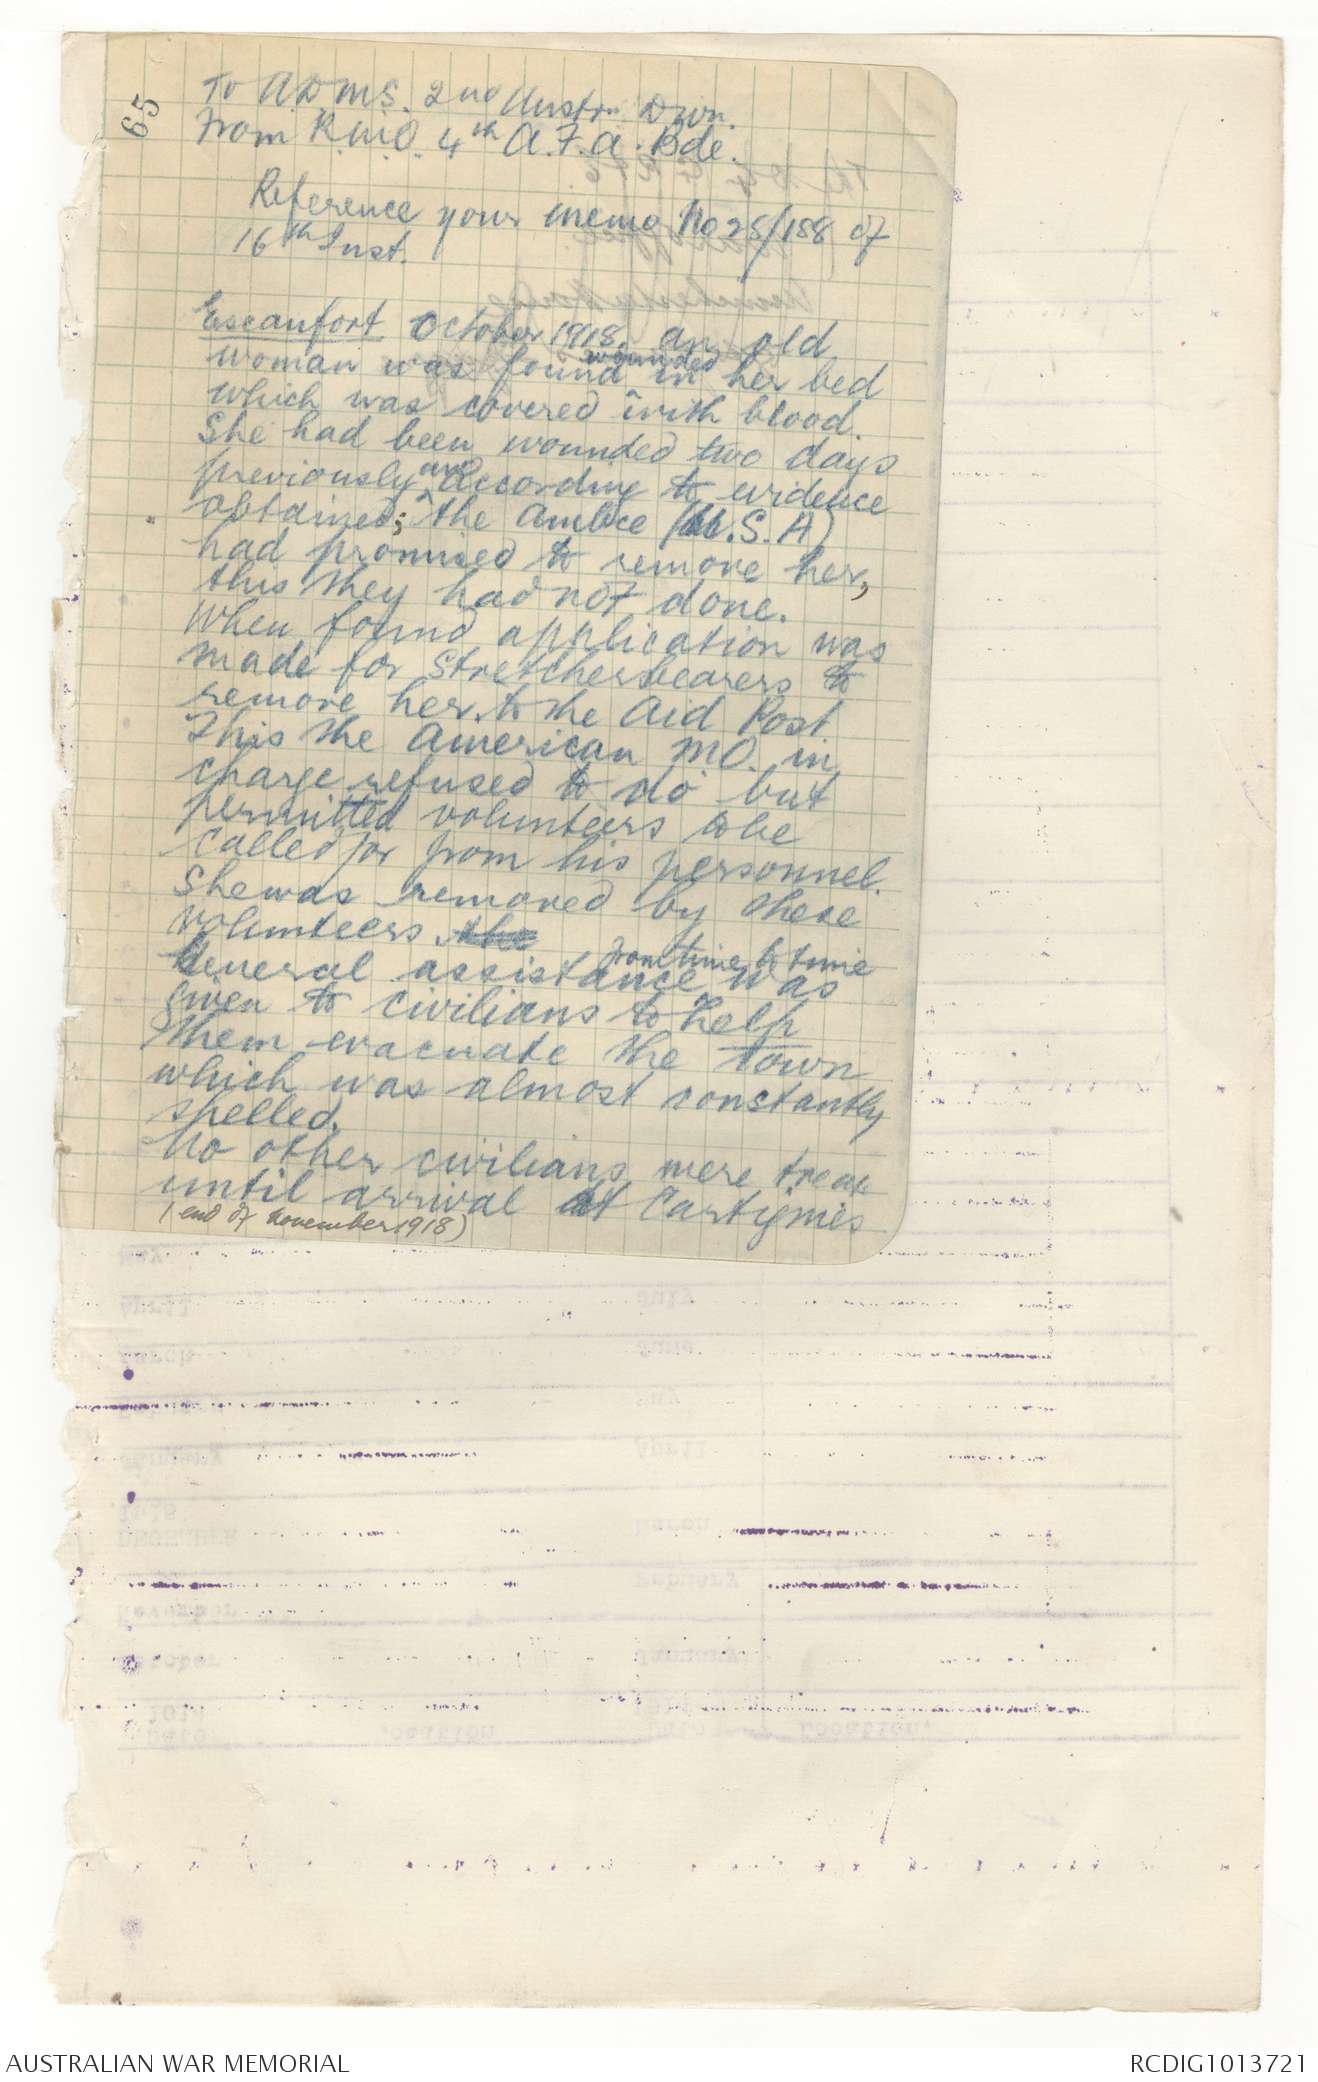 65
To ADMS. 2nd Austrn. Divn.
From R.M.O. 4th A.F.A. Bde.
Reference your memo No 28/188 of
16th Inst.
Escaufort October 1918. An old
woman was found wounded in her bed
which was covered with blood.
She had been wounded two days
previously and according to evidence
obtained; the Ambce (U.S.A)
had promised to remove her,
this they had not done.
When found application was
made for Stretcherbearers to
remove her to the Aid Post
This the American MO. in
charge refused to do but
permitted volunteers to be
called for from his personnel.
She was removed by these
volunteers. the
General assistance from time to time was
given to civilians to help
them evacuate the town
which was almost constantly
shelled.
No other civilians were treat
until arrival at Cartignies
(end of November 1918)
AUSTRALIAN WAR MEMORIAL
RCDIG1013721